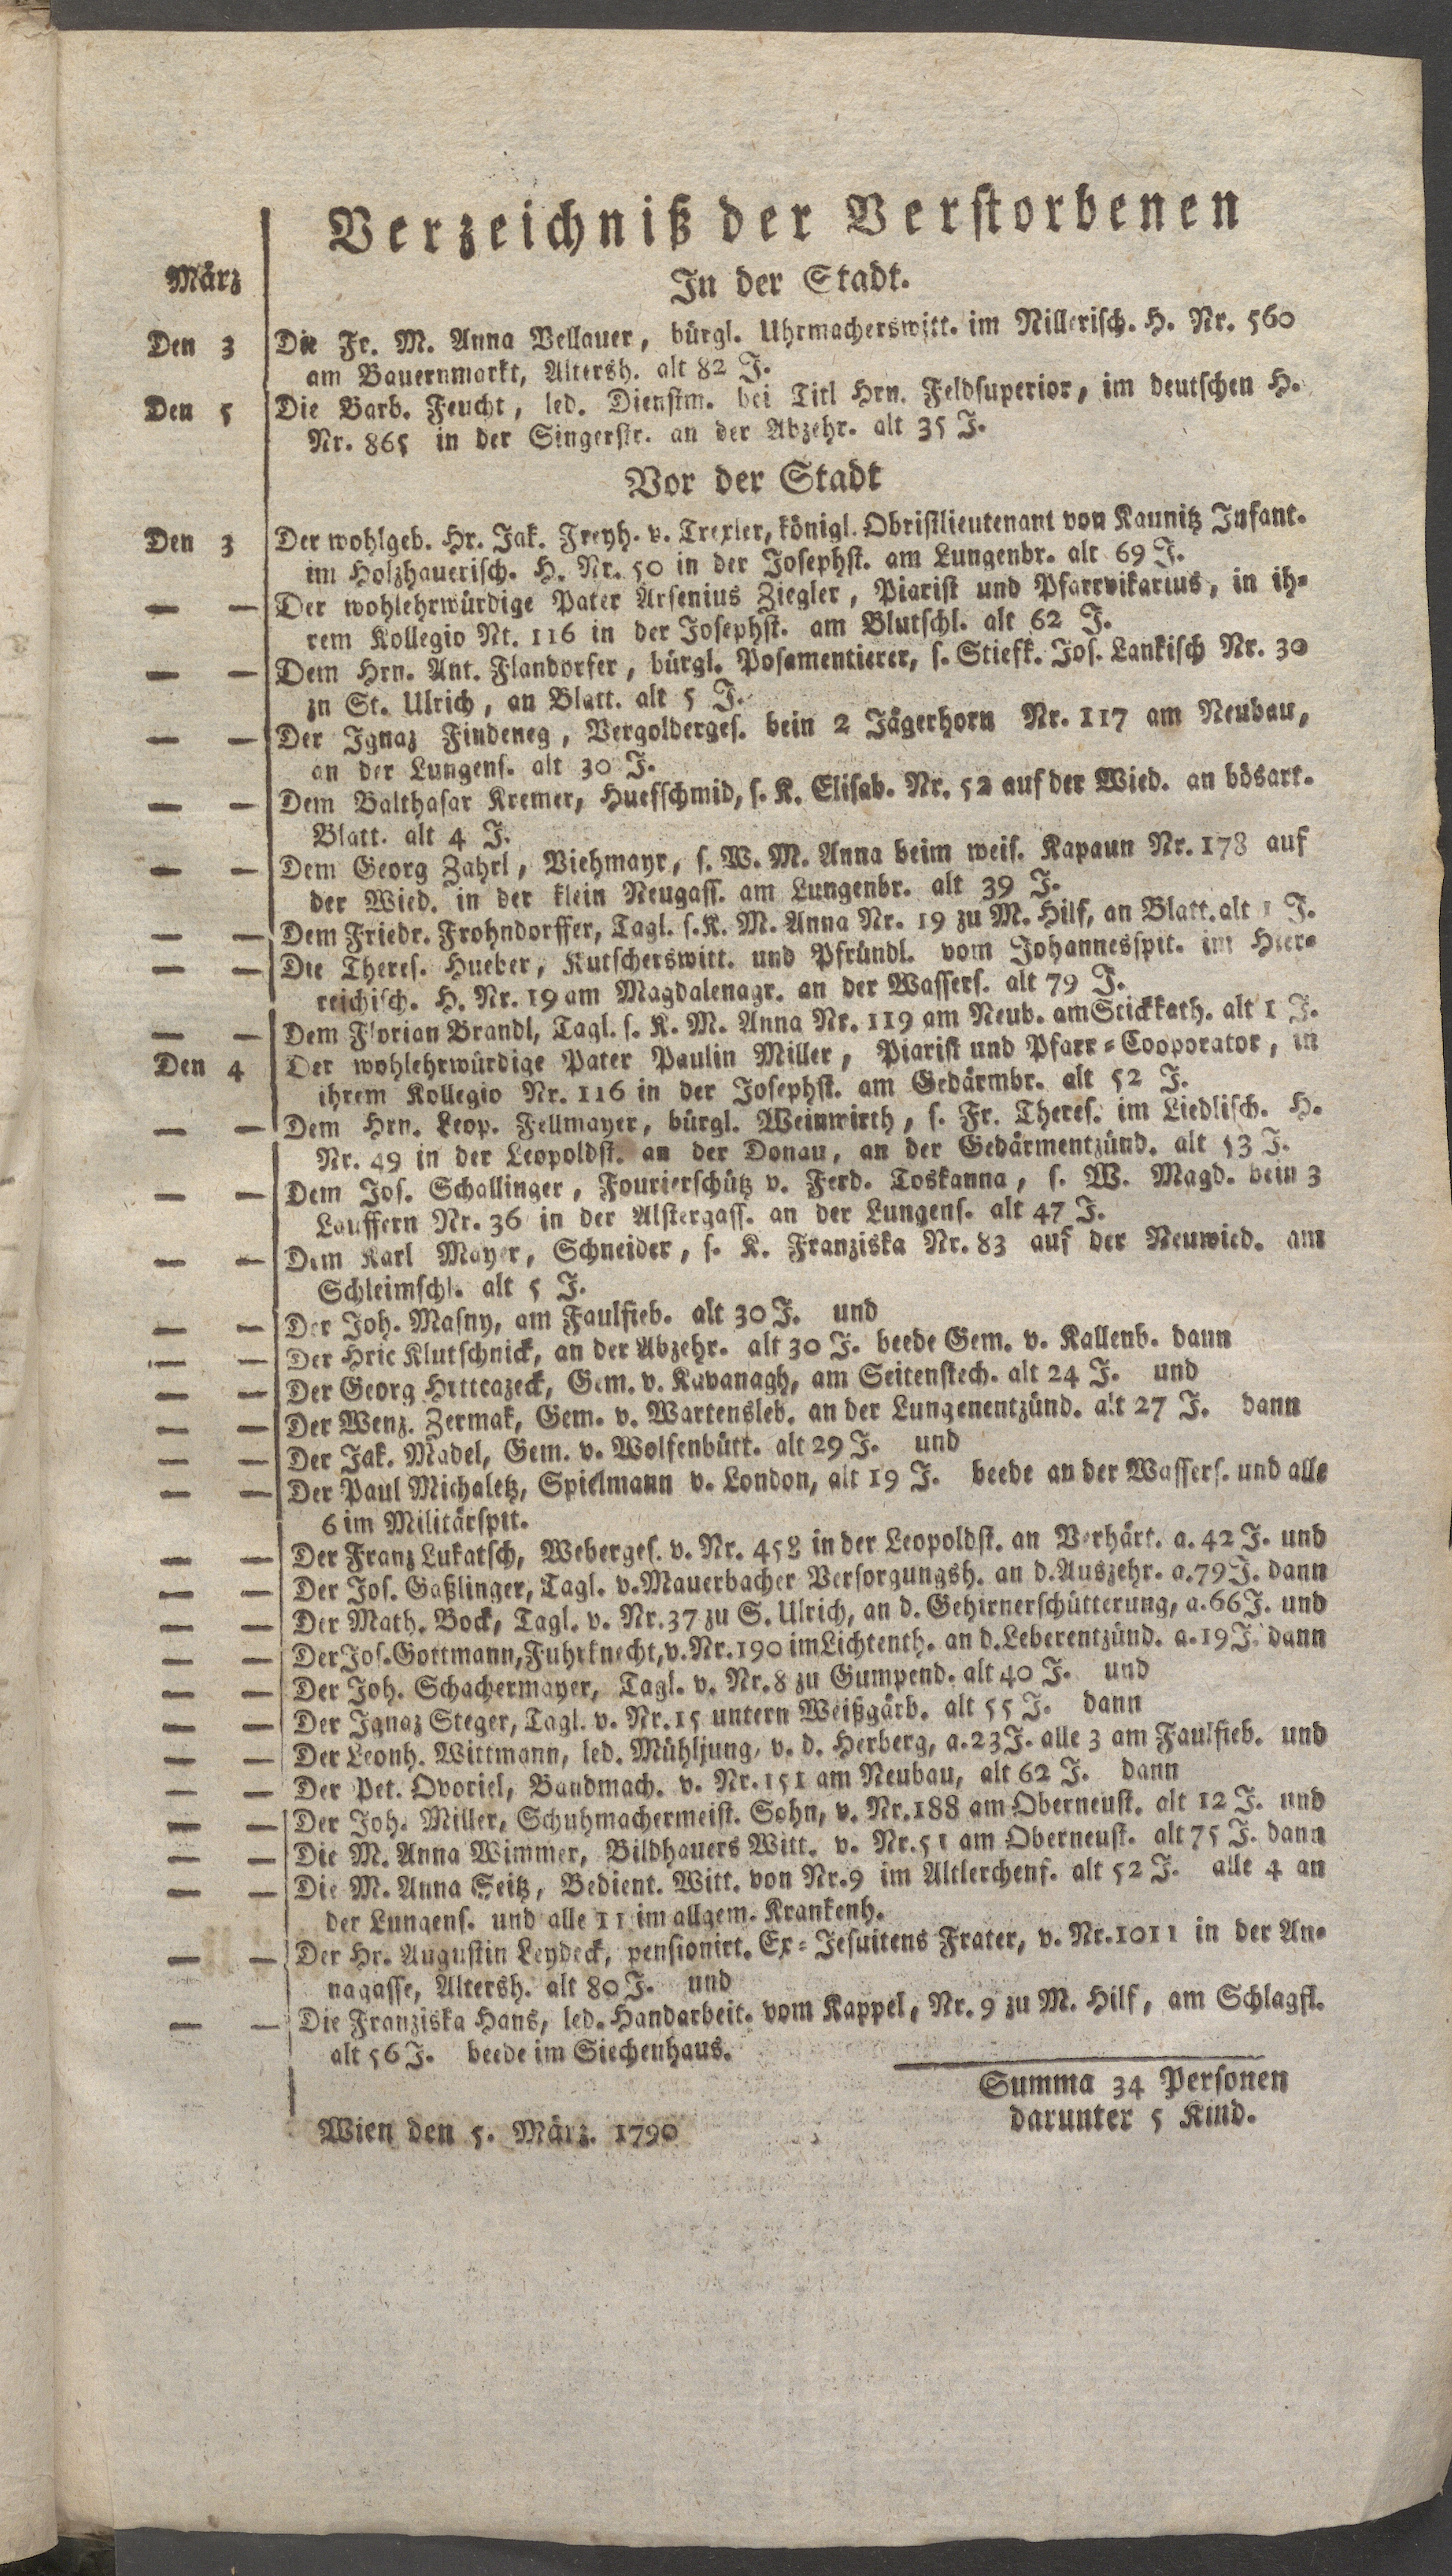 Verzeichniß der Verstorbenen
März
In der Stadt.
Den 3 Die Fr. M. Anna Vellauer, bürgl. Uhrmacherswitt. im Nillerisch. H. Nr. 560
am Bauernmarkt, Altersh. alt 82 J.
Den 5 Die Barb. Feucht, led. Dienstm. bei Titl Hrn. Feldsuperior, im deutschen H.
Nr. 865 in der Singerstr. an der Abzehr. alt 35 J.
Vor der Stadt
Den 3 Der wohlgeb. Hr. Jak. Freyh. v. Trexler, königl. Obristlieutenant von Kaunitz Infant.
im Holzhauerisch. H. Nr. 50 in der Josephst. am Lungenbr. alt 69 J.
— — Der wohlehrwürdige Pater Arsenius Ziegler, Piarist und Pfarrvikarius, in ih-
rem Kollegio Nt. 116 in der Josephst. am Blutschl. alt 62 J.
— — Dem Hrn. Ant. Flandorfer, bürgl. Posamentierer, s. Stiefk. Jos. Lankisch Nr. 30
zn St. Ulrich, an Blatt. alt 5 J.
— — Der Ignaz Findeneg, Vergolderges. bein 2 Jägerhorn Nr. 117 am Neubau,
an der Lungens. alt 30 J.
— — Dem Balthasar Kremer, Huefschmid, s. K. Elisab. Nr. 52 auf der Wied. an bösart.
Blatt. alt 4 J.
— — Dem Georg Zahrl, Viehmayr, s. W. M. Anna beim weis. Kapaun Nr. 178 auf
der Wied. in der klein Neugass. am Lungenbr. alt 39 J.
— — Dem Friedr. Frohndorffer, Tagl. s. K. M. Anna Nr. 19 zu M. Hilf, an Blatt. alt 1 J.
— — Die Theres. Hueber, Kutscherswitt. und Pfründl. vom Johannesspit. im Hier-
reichisch. H. Nr. 19 am Magdalenagr. an der Wassers. alt 79 J.
— — Dem Florian Brandl, Tagl. s. K. M. Anna Nr. 119 am Neub. am Stickkath. alt 1 J.
Den 4 Der wohlehrwürdige Pater Paulin Miller, Piarist und Pfarr-Cooporator, in
ihrem Kollegio Nr. 116 in der Josephst. am Gedärmbr. alt 52 J.
— — Dem Hrn. Leop. Fellmayer, bürgl. Weinwirth, s. Fr. Theres. im Liedlisch. H.
Nr. 49 in der Leopoldst. an der Donau, an der Gedärmentzünd. alt 53 J.
— — Dem Jos. Schallinger, Fourierschütz v. Ferd. Toskanna, s. W. Magd. bein 3
Lauffern Nr. 36 in der Alstergass. an der Lungens. alt 47 J.
— — Dem Karl Mayer, Schneider, s. K. Franziska Nr. 83 auf der Neuwied. am
Schleimschl. alt 5 J.
— — Der Joh. Masny, am Faulfieb. alt 30 J. und
— — Der Hric Klutschnick, an der Abzehr. alt 30 J. beede Gem. v. Kallenb. dann
— — Der Georg Gem. v. Kavanagh, am Seitenstech. alt 24 J. und
— — Der Wenz. Zermak, Gem. v. Wartensleb. an der Lungenentzünd. alt 27 J. dann
— — Der Jak. Madel, Gem. v. Wolfenbütt. alt 29 J. und
— — Der Paul Michaletz, Spielmann v. London, alt 19 J. beede an der Wassers. und alle
6 im Militärspit.
— — Der Franz Lukatsch, Weberges. v. Nr. 452 in der Leopoldst. an Verhärt. a. 42 J. und
— — Der Jos. Gaßlinger, Tagl. v. Mauerbacher Versorgungsh. an d. Auszehr. a. 79 J. dann
— — Der Math. Bock, Tagl. v. Nr. 37 zu S. Ulrich, an d. Gehirnerschütterung, a. 66 J. und
— — Der Jos. Gottmann, Fuhrknecht, v. Nr. 190 im Lichtenth. an d. Leberentzünd. a. 19 J. dann
— — Der Joh. Schachermayer, Tagl. v. Nr. 8 zu Gumpend. alt 40 J. und
— — Der Ignaz Steger, Tagl. v. Nr. 15 untern Weißgärb. alt 55 J. dann
— — Der Leonh. Wittmann, led. Mühljung, v. d. Herberg, a. 23 J. alle 3 am Faulfieb. und
— — Der Pet. Ovoriel, Bandmach. v. Nr. 151 am Neubau, alt 62 J. dann
— — Der Joh. Miller, Schuhmachermeist. Sohn, v. Nr. 188 am Oberneust. alt 12 J. und
— — Die M. Anna Wimmer, Bildhauers Witt. v. Nr. 51 am Oberneust. alt 75 J. dann
— — Die M. Anna Seitz, Bedient. Witt. von Nr. 9 im Altlerchenf. alt 52 J. alle 4 an
der Lungens. und alle 11 im allgem. Krankenh.
— — Der Hr. Augustin Leydeck, pensionirt. Ex-Jesuitens Frater, v. Nr. 1011 in der An-
nagasse, Altersh. alt 80 J. und
— — Die Franziska Hans, led. Handarbeit. vom Kappel, Nr. 9 zu M. Hilf, am Schlagfl.
alt 56 J. beede im Siechenhaus.
Summa 34 Personen
darunter 5 Kind.
Wien den 5. März. 1790